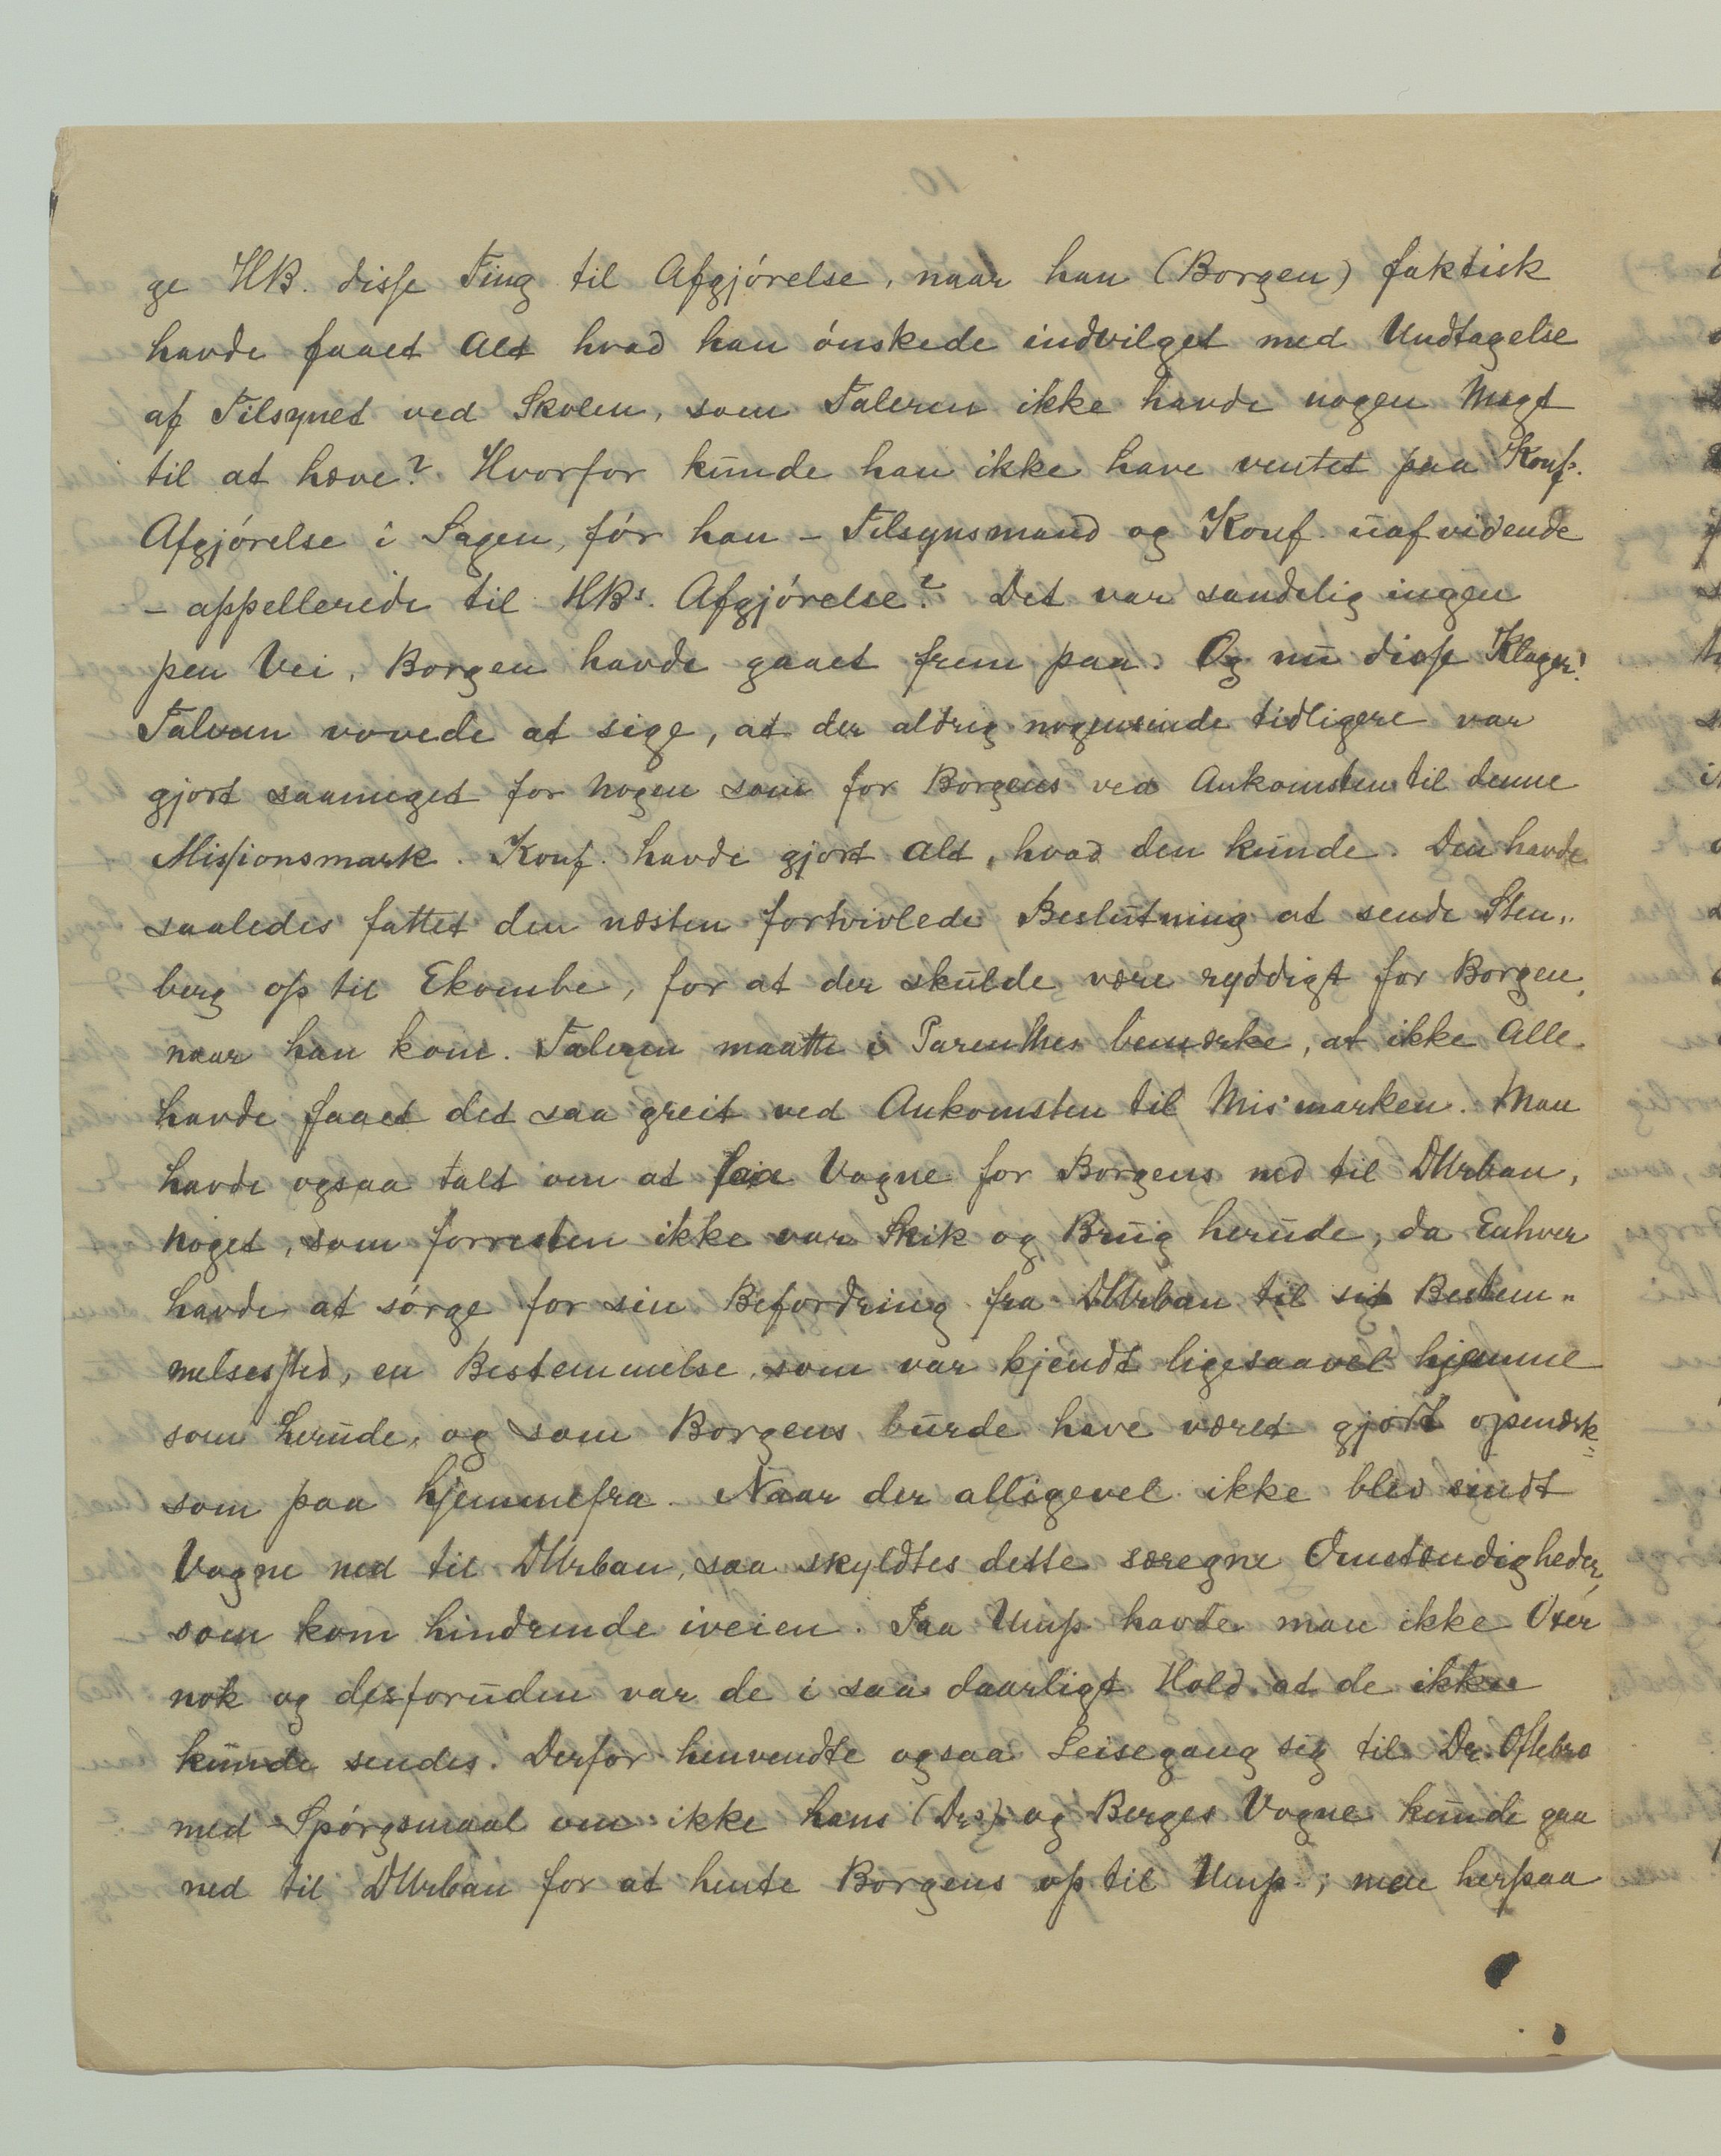 ge HB. disse Ting til Afgjörelse, naar han (Borgen) faktisk
havde faaet Alt hvad han önskede indvilget med Undtagelse
af Tilsynet ved Skolen, som Taleren ikke havde nogen Magt
til at hæve? Hvorfor kunde han ikke have ventet paa Konf.
Afgjörelse i Sagen, för han – Tilsynsmand og Konf. uafvidende
– appellerede til HBs. Afgjörelse? Det var sandelig ingen
pen Vei, Borgen havde gaaet frem paa. Og nu disse Klager!
Taleren vovede at sige, at der aldrig nogensinde tidligere var
gjort saameget for Nogen som for Borgens ved Ankomsten til denne
Missionsmark. Konf. havde gjort Alt, hvad den kunde. Den havde
saaledes fattet den næsten fortvivlede Beslutning at sende Sten„
berg op til Ekombe, for at der skulde være ryddigt for Borgen,
naar han kom. Taleren maatte i Parenthes bemærke, at ikke Alle
havde faaet det saa greit ved Ankomsten til Mis'marken. Man
havde ogsaa talt om at faa Vogne for Borgens ned til DUrban,
Noget, som forresten ikke var Skik og Brug herude, da Enhver
havde at sörge for sin Befordring fra DUrban til sit Bestem„
melsessted, en Bestemmelse som var kjendt ligesaavel hjemme
som herude, og som Borgens burde have været gjort opmærk=
som paa hjemmefra. Naar der alligevel ikke blev sendt
Vogne ned til DUrban, saa skyldtes dette særegne Omstændigheder,
som kom hindrende iveien. Paa Ump. havde man ikke Oxer
nok og desforuden var de i saa daarligt Hold at de ikke
kunde sendes. Derfor henvendte ogsaa Leisegang sig til Dr. Oftebro
med Spörgsmaal om ikke hans (Drs) og Berges Vogne kunde gaa
ned til DUrban for at hente Borgens op til Ump.; men herpaa